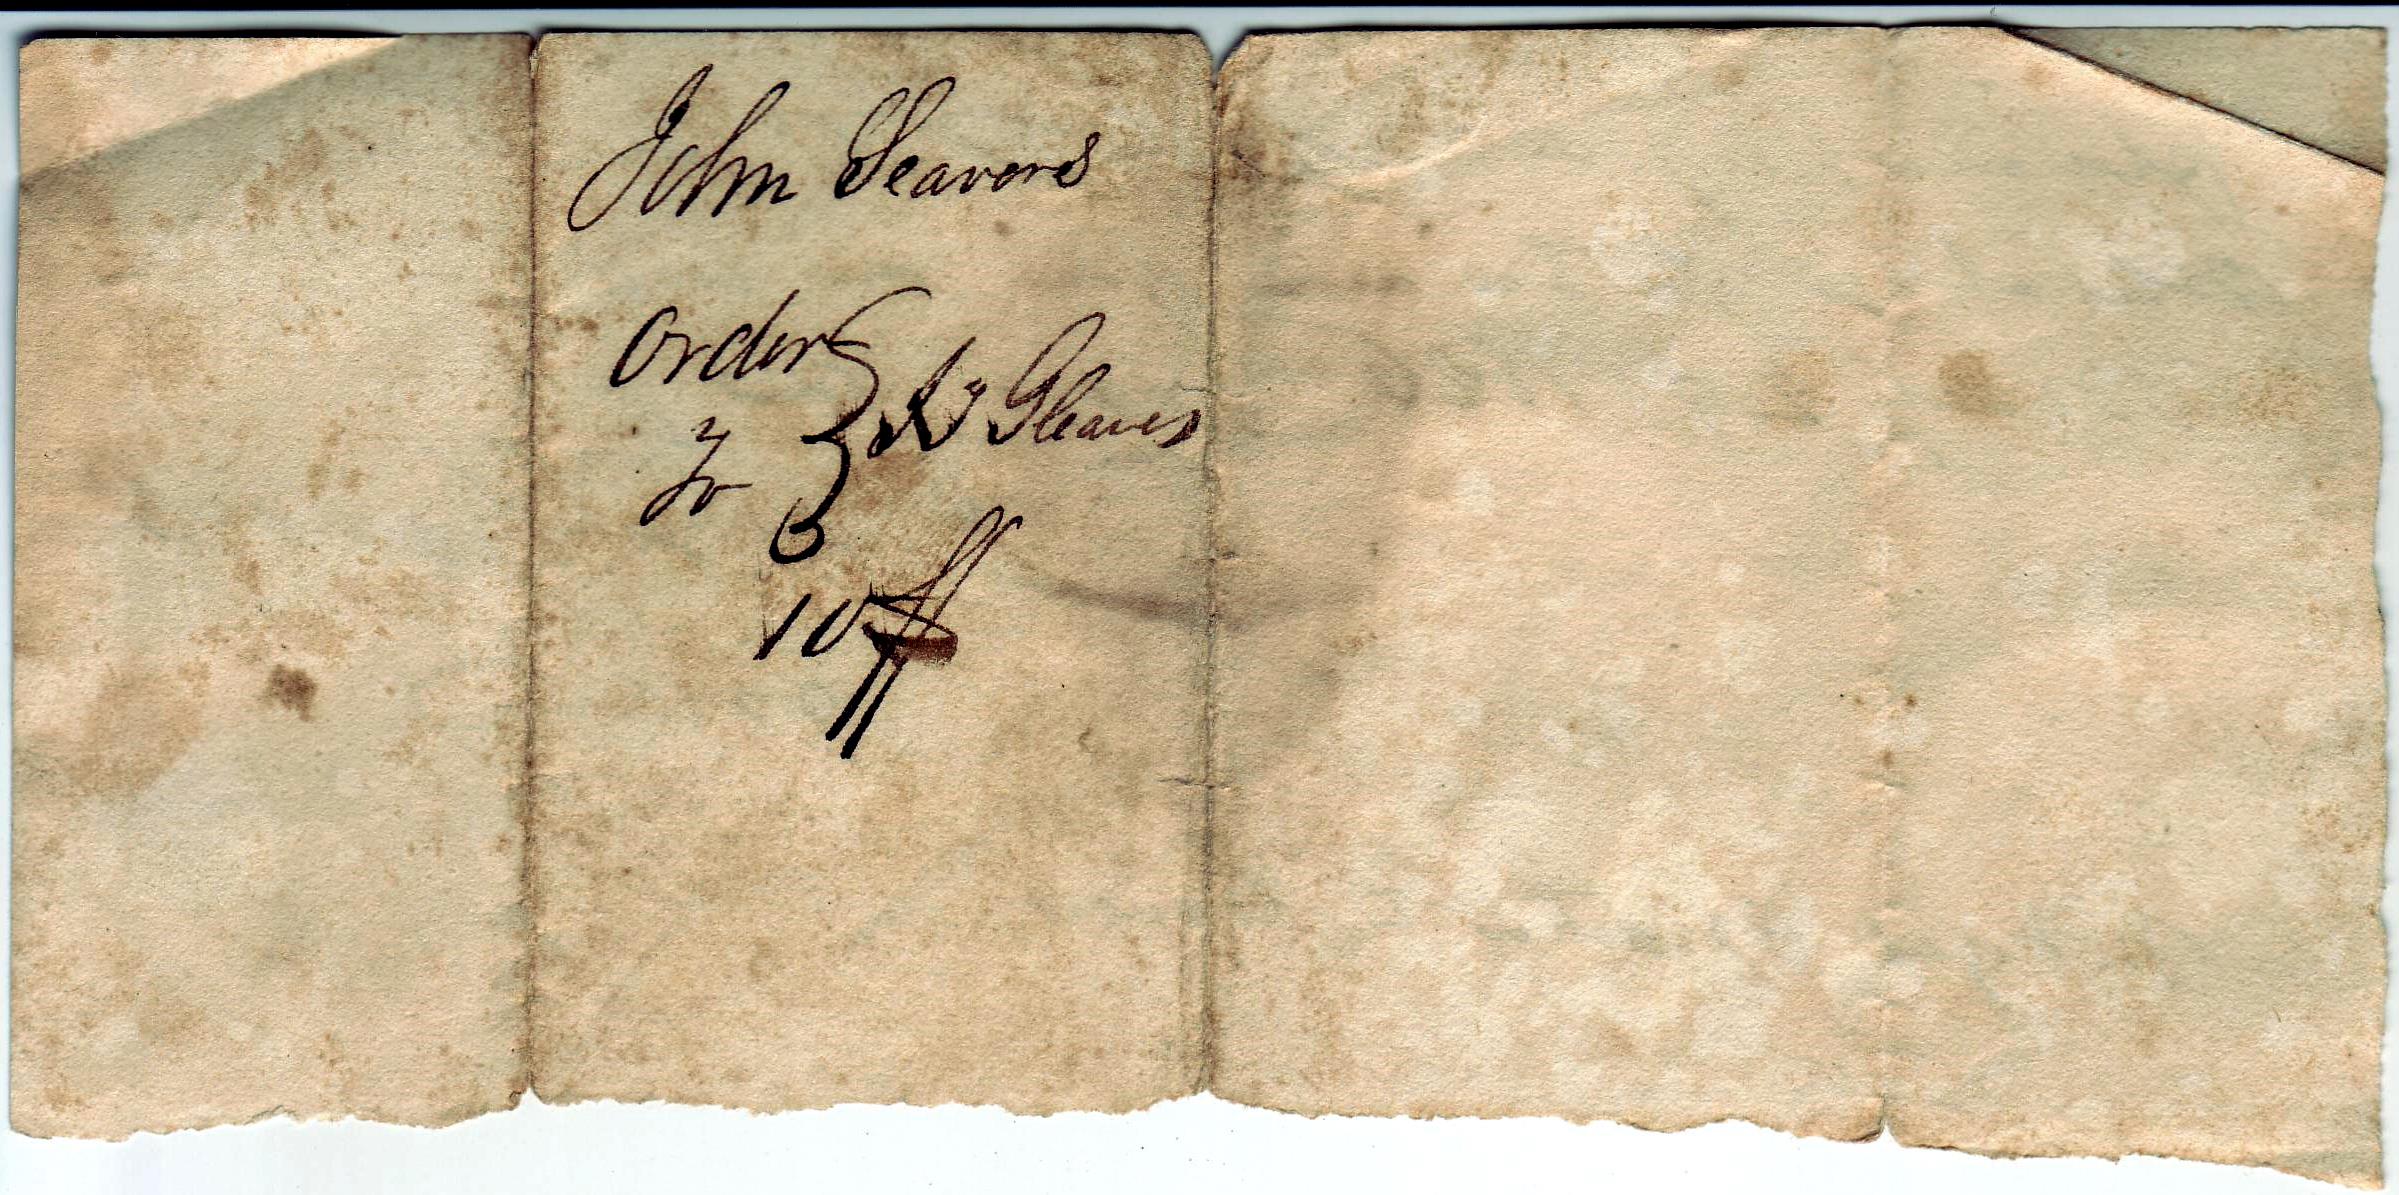 John Seavers
Order
To
Gleaves
10